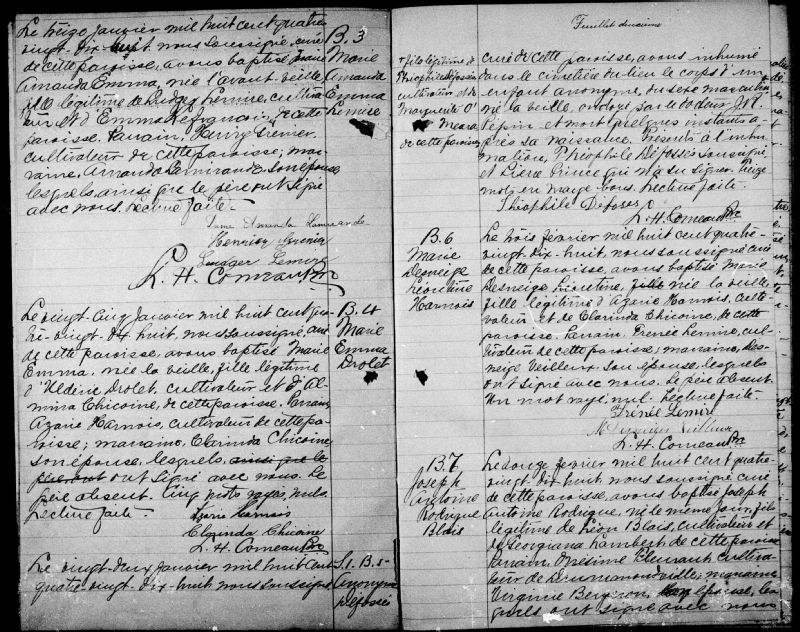 Le treize janvier mil huit cent quatre
vingt-dix-huit nous soussigné, curé
de cette paroisse, avons baptisé Marie
Amanda Emma, née l'avant veille
fille légitime de Ludger Lemire, cultiva-
teur et d'Emma Lefrançois, de cette
paroisse. Parrain, Henry Grenier
cultivateur de cette paroisse; mar-
raine, Amanda Lamirande, son épouse
lesquels ainsi que le père ont signé
avec nous. Lecture faite.
Amanda Lamirande
Henry Grenier
Ludger Lemire
L. H. Comeau Ptre
B. 3
Marie
Amanda
Emma
Lemire
Le vingt-cinq janvier mil huit cent qua-
tre-vingt-dix huit, nous soussigné, curé
de cette paroisse, avons baptisé Marie
Emma, née la veille, fille légitime
d'Uldéric Drolet, cultivateur et d'Al-
mina Chicoine, de cette paroisse. Parrain,
Azarie Harnois, cultivateur de cette pa-
roisse; marraine, Clarinda Chicoine,
son épouse, lesquels ainsi que le
père ont ont signé avec nous. Le
père absent. Cinq mots rayés, nuls.
Lecture faite.
Harnois
Clarinda Chicoine
L. H. Comeau Ptre
B. 4
Marie
Emma
Drolet
Le vingt-deux janvier mil huit cent
quatre-vingt-dix-huit nous soussigné
S. 1. B. 5
Anonyme
Défossés
Feuillet deuxième
+ fils légitime de
Théophile Défossés
cultivateur et de
Marguerite O'
Meara
de cette paroisse
curé de cette paroisse, avons inhumé
dans le cimetière du lieu le corps d'un
enfant anonyme, du sexe masculin +
né la veille, ondoyé par le Docteur J. A.
Pépin et mort quelques instants a-
près sa naissance. Présents à l'inhu-
mation, Théophile Défossés soussigné,
et Pierre Prince qui n'a su signer. Treize
mots en marge bons. Lecture faite.
Théophile Défosés
L. H. Comeau Ptre
B. 6
Marie
Desneige
Léontine
Harnois
Le trois février mil huit cent quatre-
vingt-dix-huit, nous soussigné curé
de cette paroisse, avons baptisé Marie
Desneige Léontine, fille née la veille
fille légitime d'Azarie Harnois, culti-
vateur et de Clarinda Chicoine, de cette
paroisse. Parrain, Irénée Lemire, cul-
tivateur de cette paroisse; marraine, Des-
neige Veilleux, son épouse, lesquels
ont signé avec nous. Le père absent.
Un mot rayé, nul. Lecture faite.
Irénée Lemire
L. H. Comeau Ptre
B. 7
Joseph
Antoine
Rodrigue
Blais
Le douze février mil huit cent quatre-
vingt-dix-huit nous soussigné curé
de cette paroisse, avons baptisé Joseph
Antoine Rodrigue, né le même jour, fils
légitime de Léon Blais, cultivateur et
de Georgiana Lambert de cette paroisse
Parrain, Onésime Fleurant cultiva-
teur de Drummondville, marraine
Virginie Bergeron, son épouse, les-
quels ont signé avec nous